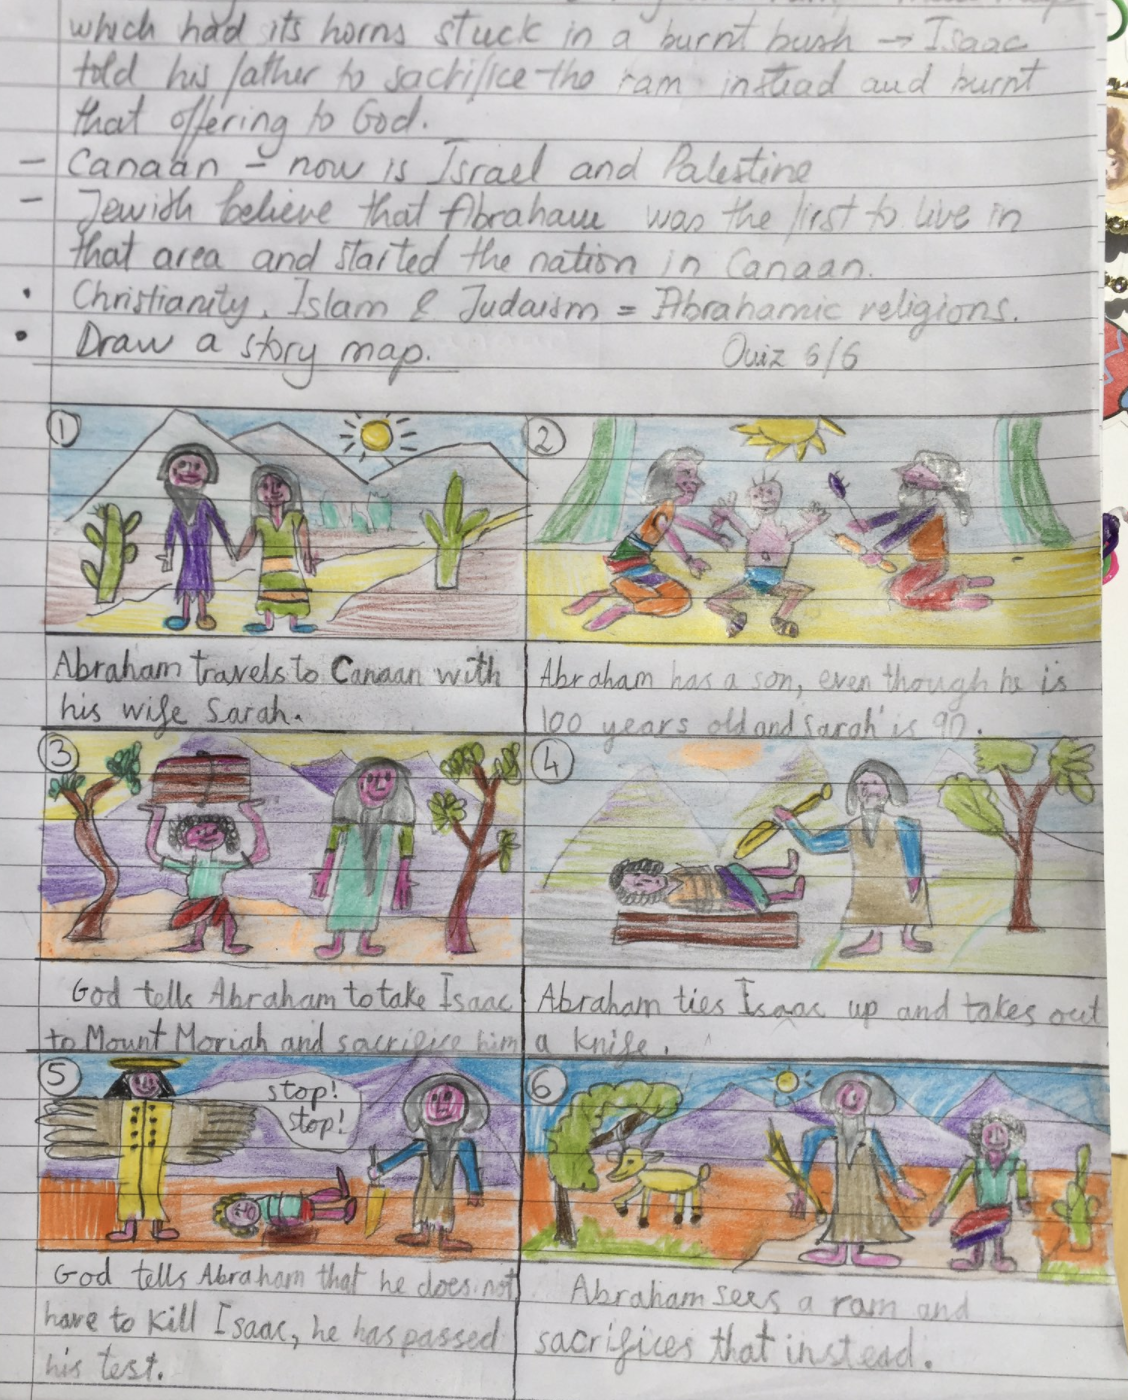 which had its horns stuck in a burnt bush → Isaac
told his father to sacrifice the ram instead and burnt
that offering to God.
- Canaan - now is Israel and Palestine
- Jewish believe that Abraham was the first to live in
that area and started the nation in Canaan.
• Christianity, Islam & Judaism = Abrahamic religions.
• Draw a story map. Quiz 6/6
1
2
Abraham travels to Canaan with
his wife Sarah.
Abraham has a son, even though he is
100 years old and Sarah is 90.
3
4
God tells Abraham to take Isaac
to Mount Moriah and sacrifice him
Abraham ties Isaac up and takes out
a knife.
5
stop!
stop!
6
God tells Abraham that he does not
have to kill Isaac, he has passed
his test.
Abraham sees a ram and
sacrifices that instead.